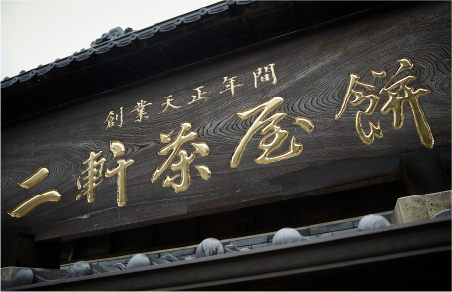 創業天正年間
二軒茶屋餅